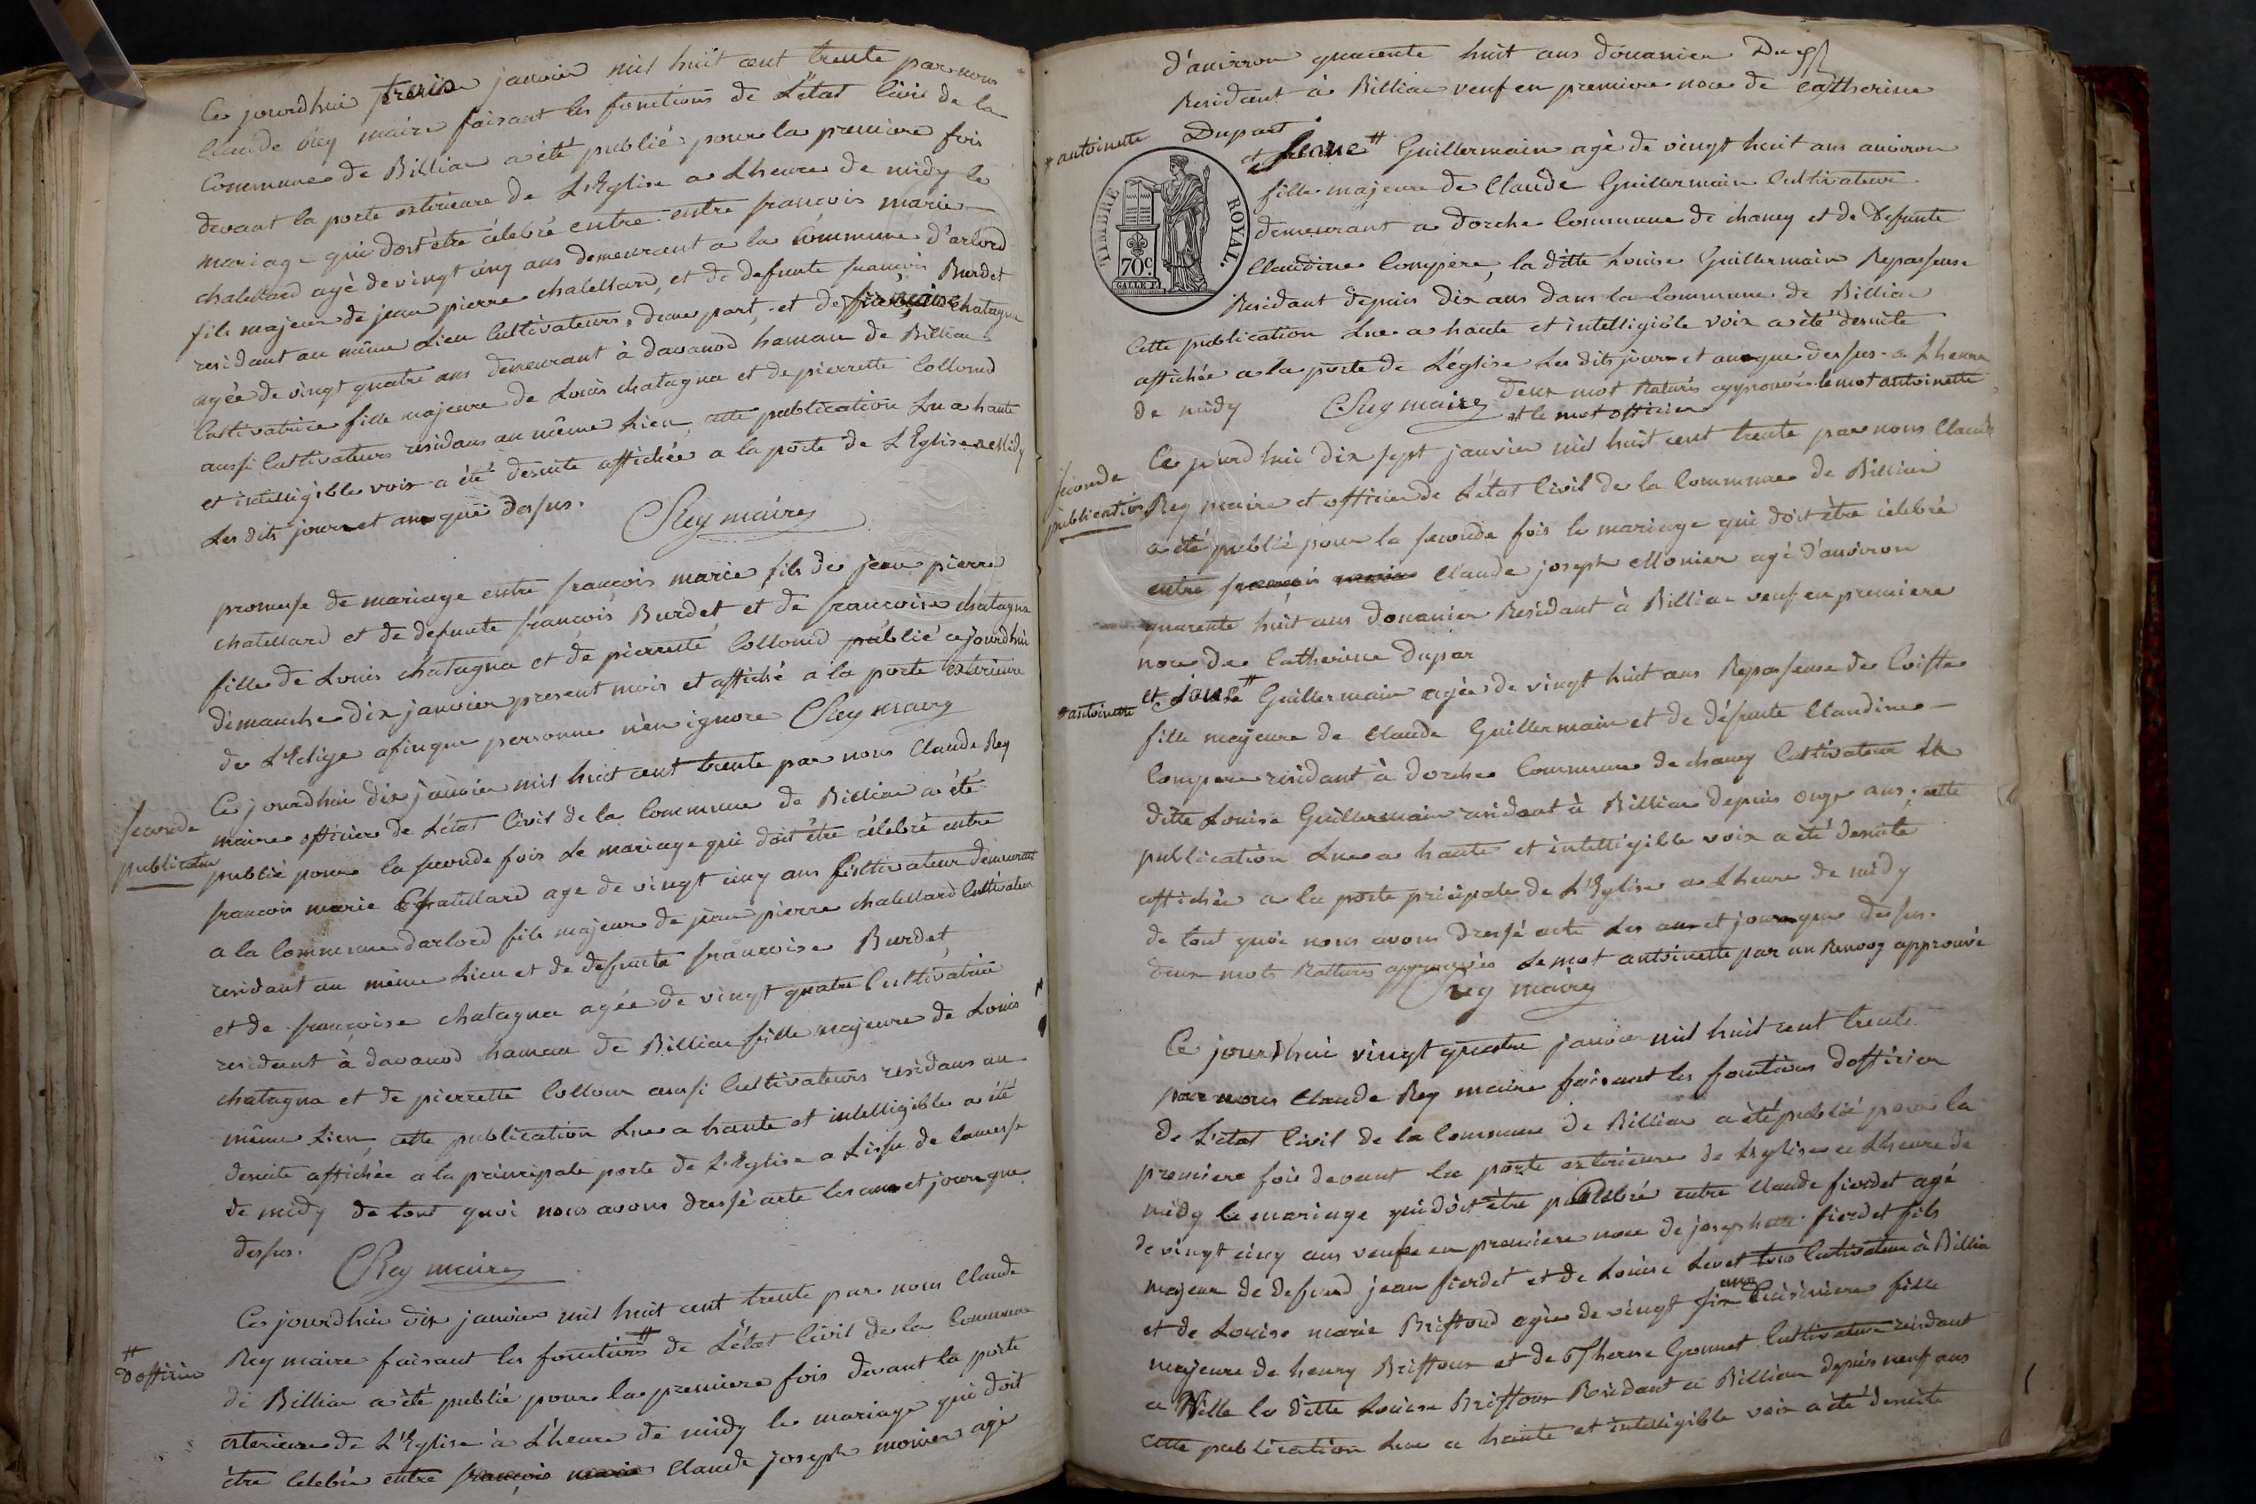 Ce jourdhui trois janvier mil huit cent trente par nous
Claude Rey maire faisant les fonctions de L'état Civil de la
Commune de Billiat a été publié pour la premiere fois
devant la porte exterieure de L'Eglise a Lheure de midy le
mariage qui doit être célébré entre entre francois marie
chatellard agé de vingt cinq ans demeurant a la Commune d'arlod
fils majeur de jean pierre chatellard, et de defunte francois Burdet
residant au même Lieu Cultivateurs, dune part, et de francoise chatagna
agée de vingt quatre ans demeurant à davanod hamau de Billiat
Cultivatrice fille majeure de Louis chatagna et de pierrette Collomd
aussi Cultivateurs residans au même Lieu, cette publication Lu a haute
et intelligible voix a été desuite affichée a la porte de L'Eglise a Midy
Les dits jour et an que dessus.
CRey maire
promesse de mariage entre francois marie fils de jean pierre
chatellard et de defunte francois Burdet et de francoise chatagna
fille de Louis chatagna et de pierrette Collomd publié cejourdhui
démanche dix janvier present mois et affiché a la porte exterieure
de L'Eclige afinque personne n'en ignore CRey maire
Seconde
publication
Ce jourdhui dix janvier mil huit cent trente par nous Claude Rey
maire officier de L'état Civil de la Commune de Billiat a été
publié pour la seconde fois Le mariage qui doit être célébré entre
francois marie Chatellard age de vingt cinq ans Cultivateur demeurant
a la Commune darlod fils majeur de jean pierre chatellard Cultivateur
residant au même Lieu et de defunte francoise Burdet
et de francoise chatagna agée de vingt quatre Cultivatrice
residant à davanod hamau de Billiat fille majeure de Louis
chatagna et de pierrette Collom aussi Cultivateurs residans au
même Lieu, cette publication Lue a haute et intelligible a été
desuite affichée a la principale porte de L'Eglise a Lissu de lamesse
de midy de tout quoi nous avons dressé acte les an et jour que
dessus.
CRey maire
Ce jourdhui dix janvier mil huit cent trente par nous Claude
# d'officier
Rey maire faisant les fonctions # de L'état Civil de la Commune
de Billiat a été publié pour la premiere fois devant la porte
exterieure de L'Eglise à Lheure de midy le mariage qui doit
être Celebré entre francois marie Claude joseph monier agé
d'anviron quarente huit ans douanier
Residant à Billiat veuf en premiere noce de Catherine
Dupart
# antoinette
TIMBRE ROYAL.
70c
et # Guillermain agè de vingt huit ans anviron
fille majeure de Claude Guillermain Cultivateur
demeurant a dorche Commune de chanay et de Defunte
Claudine Compère, la ditte Louise Guillermain Repasseuse
Residant depuis dix ans dans la Commune de Billiat
Cette publication Lue a haute et intelligible voix a été desuite
affichée a la porte de L'église Les dits jour et an que dessus a Lheure
de midy CRey maire deux mot Raturés approuvés le mot antoinette
et le mot officier
Seconde
publication
Ce jourd hui Dix sept janvier mil huit cent trente par nous Claude
Rey maire et officier de L'état Civil de la Commune de Billiat
a été publié pour la seconde fois le mariage qui doit être célébré
entre francois marie Claude joseph Monier agé d'anviron
quarente huit ans douanier Residant à Billiat veuf en premiere
noce de Catherine dupar
# antoinette
et Louise # Guillermain agée de vingt huit ans Repasseuse de Coiffe
fille majeure de Claude Guillermain et de défunte Claudine
Compere residant à dorche Commune de chanay Cultivateur La
ditte Louise Guillermain residant à Billiat depuis onze ans, cette
publication Lue a haute et intelligible voix a été desuite
affichée a la porte pricipale de L'Eglise a Lheure de midy
de tout quoi nous avons dressé acte Les an et jour que dessus.
deux mots Ratturés approuvés Le mot antoinette par un Renvoy approuvé
CRey maire
Ce jourdhui vingt quatre janvier mil huit cent trente
par nous Claude Rey maire faisant les fonctions dofficier
de L'état Civil de la Commune de Billiat a été publié pour la
premiere fois devant la porte exterieure de L'Eglise a Lheure de
midy le mariage qui doit être célébré entre Claude fierdet agé
de vingt cinq ans veuf en premiere noce de josephte fierdet fils
majeur de defund jean fierdet et de Louise Levet tous Cultivateur à Billiat
et de Louise marie Briffoud agée de vingt six ans Cuisiniere fille
majeure de henry Briffour et de Therese Gronnet Cultivateur residant
a Ville la ditte Louise Briffour Residant a Billiat depuis neuf ans
cette publication Lue a haute et intelligible voix a été desuite